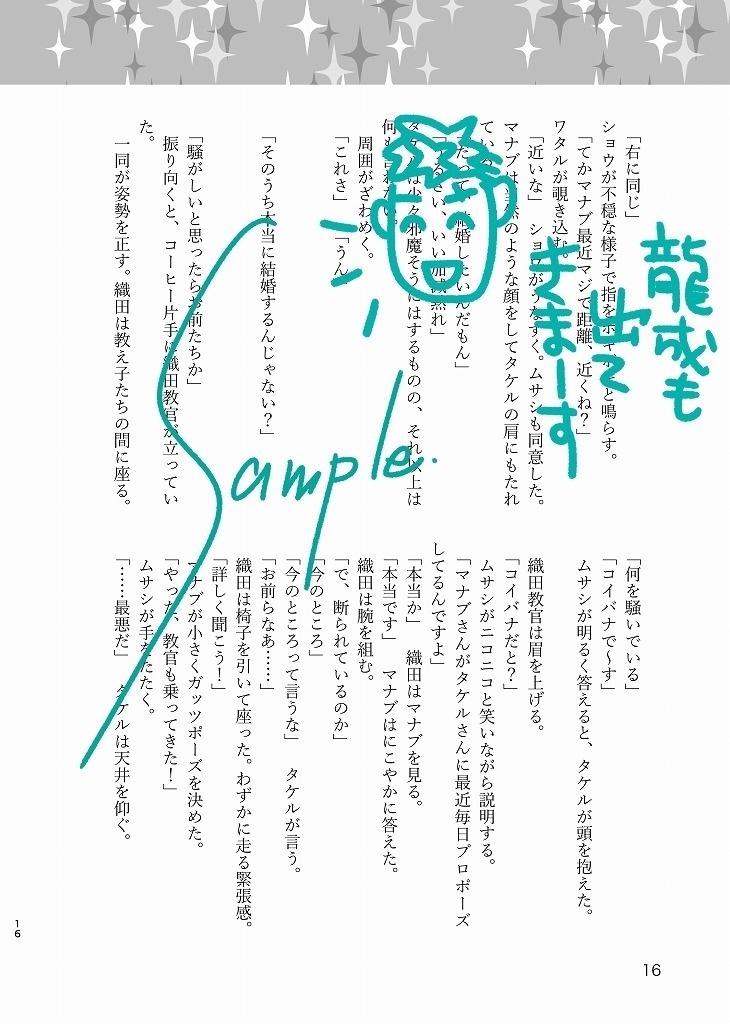 「右に同じ」
ショウが不穏な様子で指をポキポキと鳴らす。
「てかマナブ最近マジで距離、近くね？」
ワタルが覗き込む。
「近いな」　ショウがうなずく。ムサシも同意した。
マナブは当然のような顔をしてタケルの肩にもたれ
ている。
結婚したいんだもん」
い、いい加減黙れ」
タケルは少々邪魔そうにはするものの、それ以上は
何も言わない。
周囲がざわめく。
「これさ」　「うん」
「そのうち本当に結婚するんじゃない？」
「騒がしいと思ったらお前たちか」
振り向くと、コーヒー片手に織田教官が立ってい
た。
一同が姿勢を正す。織田は教え子たちの間に座る。
「何を騒いでいる」
「コイバナで〜す」
ムサシが明るく答えると、タケルが頭を抱えた。
織田教官は眉を上げる。
「コイバナだと？」
ムサシがニコニコと笑いながら説明する。
「マナブさんがタケルさんに最近毎日プロポーズ
してるんですよ」
「本当か」　織田はマナブを見る。
「本当です」　マナブはにこやかに答えた。
織田は腕を組む。
「で、断られているのか」
「今のところ」
「今のところって言うな」　タケルが言う。
「お前らなあ……」
織田は椅子を引いて座った。わずかに走る緊張感。
「詳しく聞こう！」
マナブが小さくガッツポーズを決めた。
「やった、教官も乗ってきた！」
ムサシが手をたたく。
「……最悪だ」　タケルは天井を仰ぐ。
龍成も
出て
きまーす
Sample.
16
16